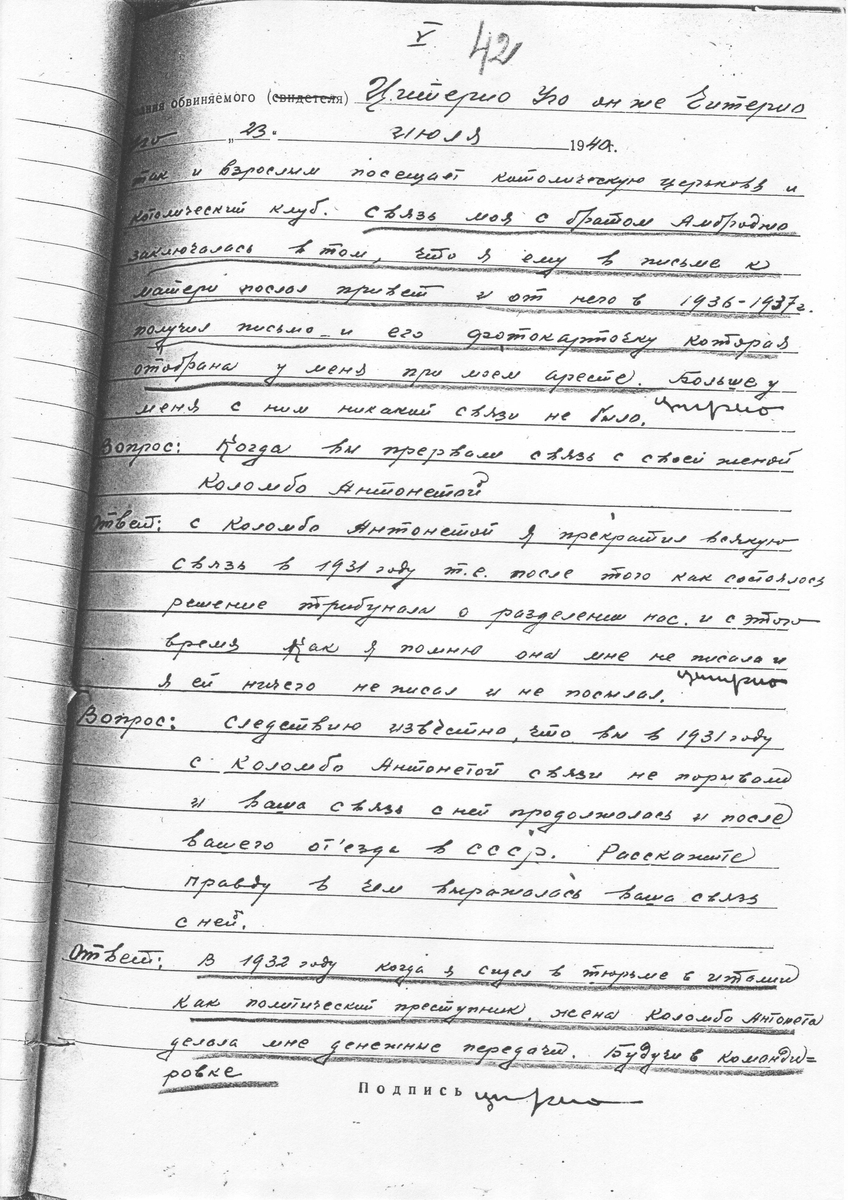 V 42
обвиняемого (свидетеля) Цитерио Уго он же Читерио
„23" июля 1940г.
так и взрослым посещает католическую церьковь и
католический клуб. Связь моя с братом Амброджо
заключалась в том, что я ему в письме к
матери послал привет и от него в 1936-1937г.
получил письмо и его фотокарточку которая
отобрана у меня при моем аресте. Больше у
меня с ним никакий связи не было.
Вопрос: Когда вы прервали связь с своей женой
Коломбо Антонетой
Ответ: с Коломбо Антонетой я прекратил всякую
связь в 1931 году т.е. после того как состоялось
решение трибунала о разделении нас. и с этого
время как я помню она мне не писала и
я ей ничего не писал и не посылал.
Вопрос: следствию известно, что вы в 1931 году
с Коломбо Антонетой связи не порывали
и ваша связь с ней продолжалась и после
вашего от'езда в СССР. Расскажите
правду в чем выражалась ваша связь
с ней.
Ответ: В 1932 году когда я сидел в тюрьме в италии
как политический преступник, жена Коломбо Антонета
делала мне денежные передачи. Будучи в команди=
ровке
Подпись